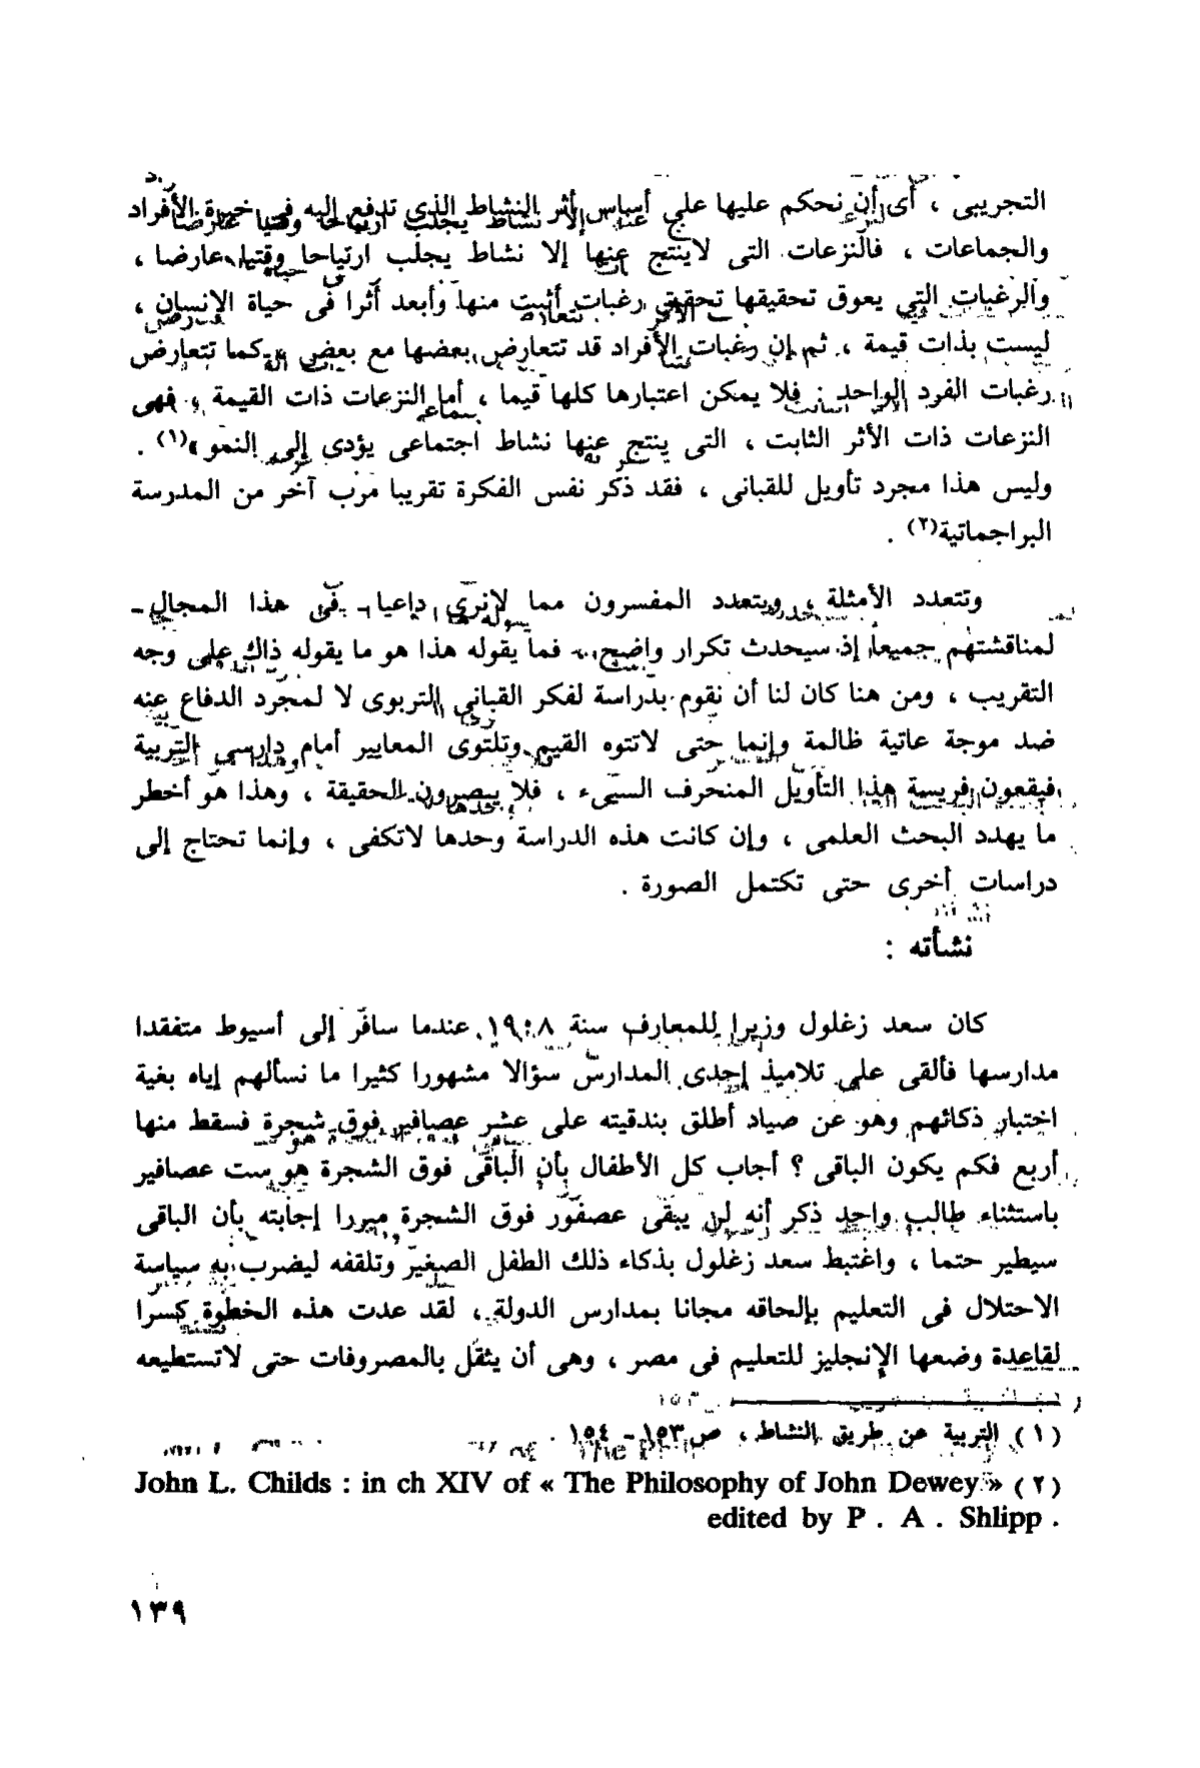 التجريبى ، أى أن نحكم عليها على أساس أثر النشاط الذى تدفع إليه فى خبرة الأفراد
والجماعات ، فالنزعات التى لاينتج عنها إلا نشاط يجلب ارتياحا وقتيا عارضا ،
والرغبات التى يعوق تحقيقها تحقيق رغبات أثبت منها وأبعد أثرا فى حياة الإنسان ،
ليست بذات قيمة ، ثم إن رغبات الأفراد قد تتعارض بعضها مع بعض كما تتعارض
رغبات الفرد الواحد : فلا يمكن اعتبارها كلها قيما ، أما النزعات ذات القيمة ، فهى
النزعات ذات الأثر الثابت ، التى ينتج عنها نشاط اجتماعى يؤدى إلى النمو »(١) .
وليس هذا مجرد تأويل للقبانى ، فقد ذكر نفس الفكرة تقريبا مرب آخر من المدرسة
البراجماتية(٢) .
وتتعدد الأمثلة ، ويتعدد المفسرون مما لانرى داعيا - فى هذا المجال -
لمناقشتهم جميعا إذ سيحدث تكرار واضح ، فما يقوله هذا هو ما يقوله ذاك على وجه
التقريب ، ومن هنا كان لنا أن نقوم بدراسة لفكر القبانى التربوى لا لمجرد الدفاع عنه
ضد موجة عاتية ظالمة وإنما حتى لاتتوه القيم وتلتوى المعايير أمام دارسى التربية
فيقعون فريسة هذا التأويل المنحرف السيىء ، فلا يبصرون الحقيقة ، وهذا هو أخطر
ما يهدد البحث العلمى ، وإن كانت هذه الدراسة وحدها لاتكفى ، وإنما تحتاج إلى
دراسات أخرى حتى تكتمل الصورة .
نشأته :
كان سعد زغلول وزيرا للمعارف سنة ١٩٠٨ عندما سافر إلى أسيوط متفقدا
مدارسها فألقى على تلاميذ إحدى المدارس سؤالا مشهورا كثيرا ما نسألهم إياه بغية
اختبار ذكائهم وهو عن صياد أطلق بندقيته على عشر عصافير فوق شجرة فسقط منها
أربع فكم يكون الباقى ؟ أجاب كل الأطفال بأن الباقى فوق الشجرة هو ست عصافير
باستثناء طالب واحد ذكر أنه لن يبقى عصفور فوق الشجرة مبررا إجابته بأن الباقى
سيطير حتما ، واغتبط سعد زغلول بذكاء ذلك الطفل الصغير وتلقفه ليضرب به سياسة
الاحتلال فى التعليم بإلحاقه مجانا بمدارس الدولة ، لقد عدت هذه الخطوة كسرا
لقاعدة وضعها الإنجليز للتعليم فى مصر ، وهى أن يثقل بالمصروفات حتى لاتستطيعه
(١) التربية عن طريق النشاط ، ص ١٥٣ - ١٥٤ .
John L. Childs : in ch XIV of « The Philosophy of John Dewey » (٢)
edited by P . A . Shlipp .
١٣٩